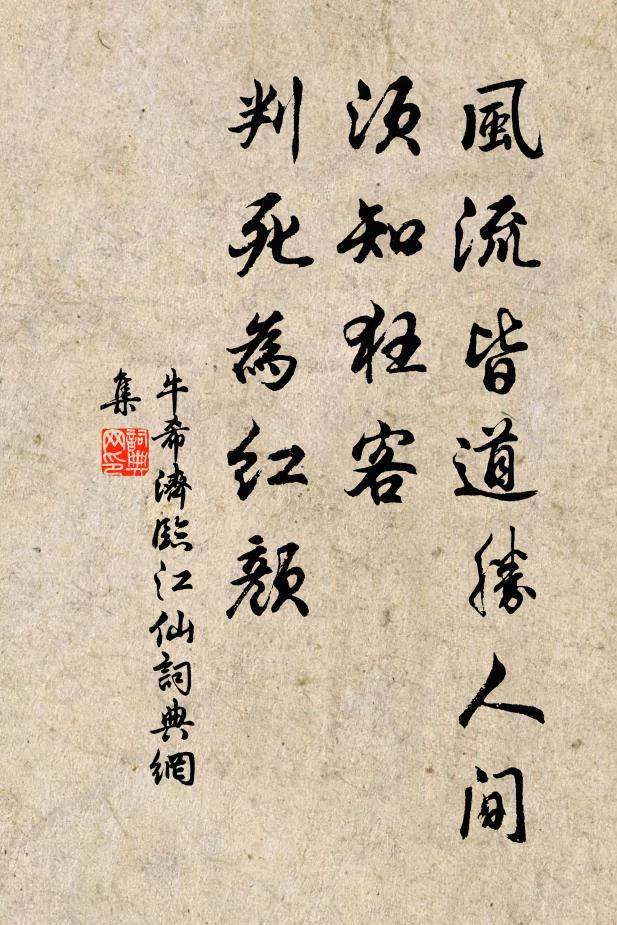 風流皆道勝人間
須知狂客
判死為紅顏
牛希濟臨江仙詞典網
集
詞典
网印